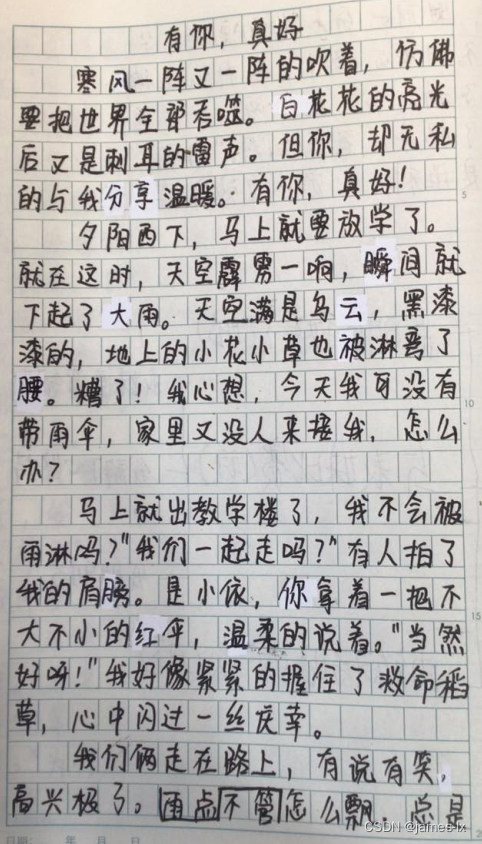 有你，真好
寒风一阵又一阵的吹着，仿佛
要把世界全部吞噬。白花花的亮光
后又是刺耳的雷声。但你，却无私
的与我分享温暖。有你，真好！
夕阳西下，马上就要放学了。
就在这时，天空霹雳一响，瞬间就
下起了大雨。天空满是乌云，黑漆
漆的，地上的小花小草也被淋弯了
腰。糟了！我心想，今天我可没有
带雨伞，家里又没人来接我，怎么
办？
马上就出教学楼了，我不会被
雨淋吗？"我们一起走吗？"有人拍了
我的肩膀。是小依，你拿着一把不
大不小的红伞，温柔的说着。"当然
好呀！"我好像紧紧的握住了救命稻
草，心中闪过一丝庆幸。
我们俩走在路上，有说有笑，
高兴极了。雨点不管怎么飘，总是
5
10
15
日期： 年 月 日
CSDN @james lx